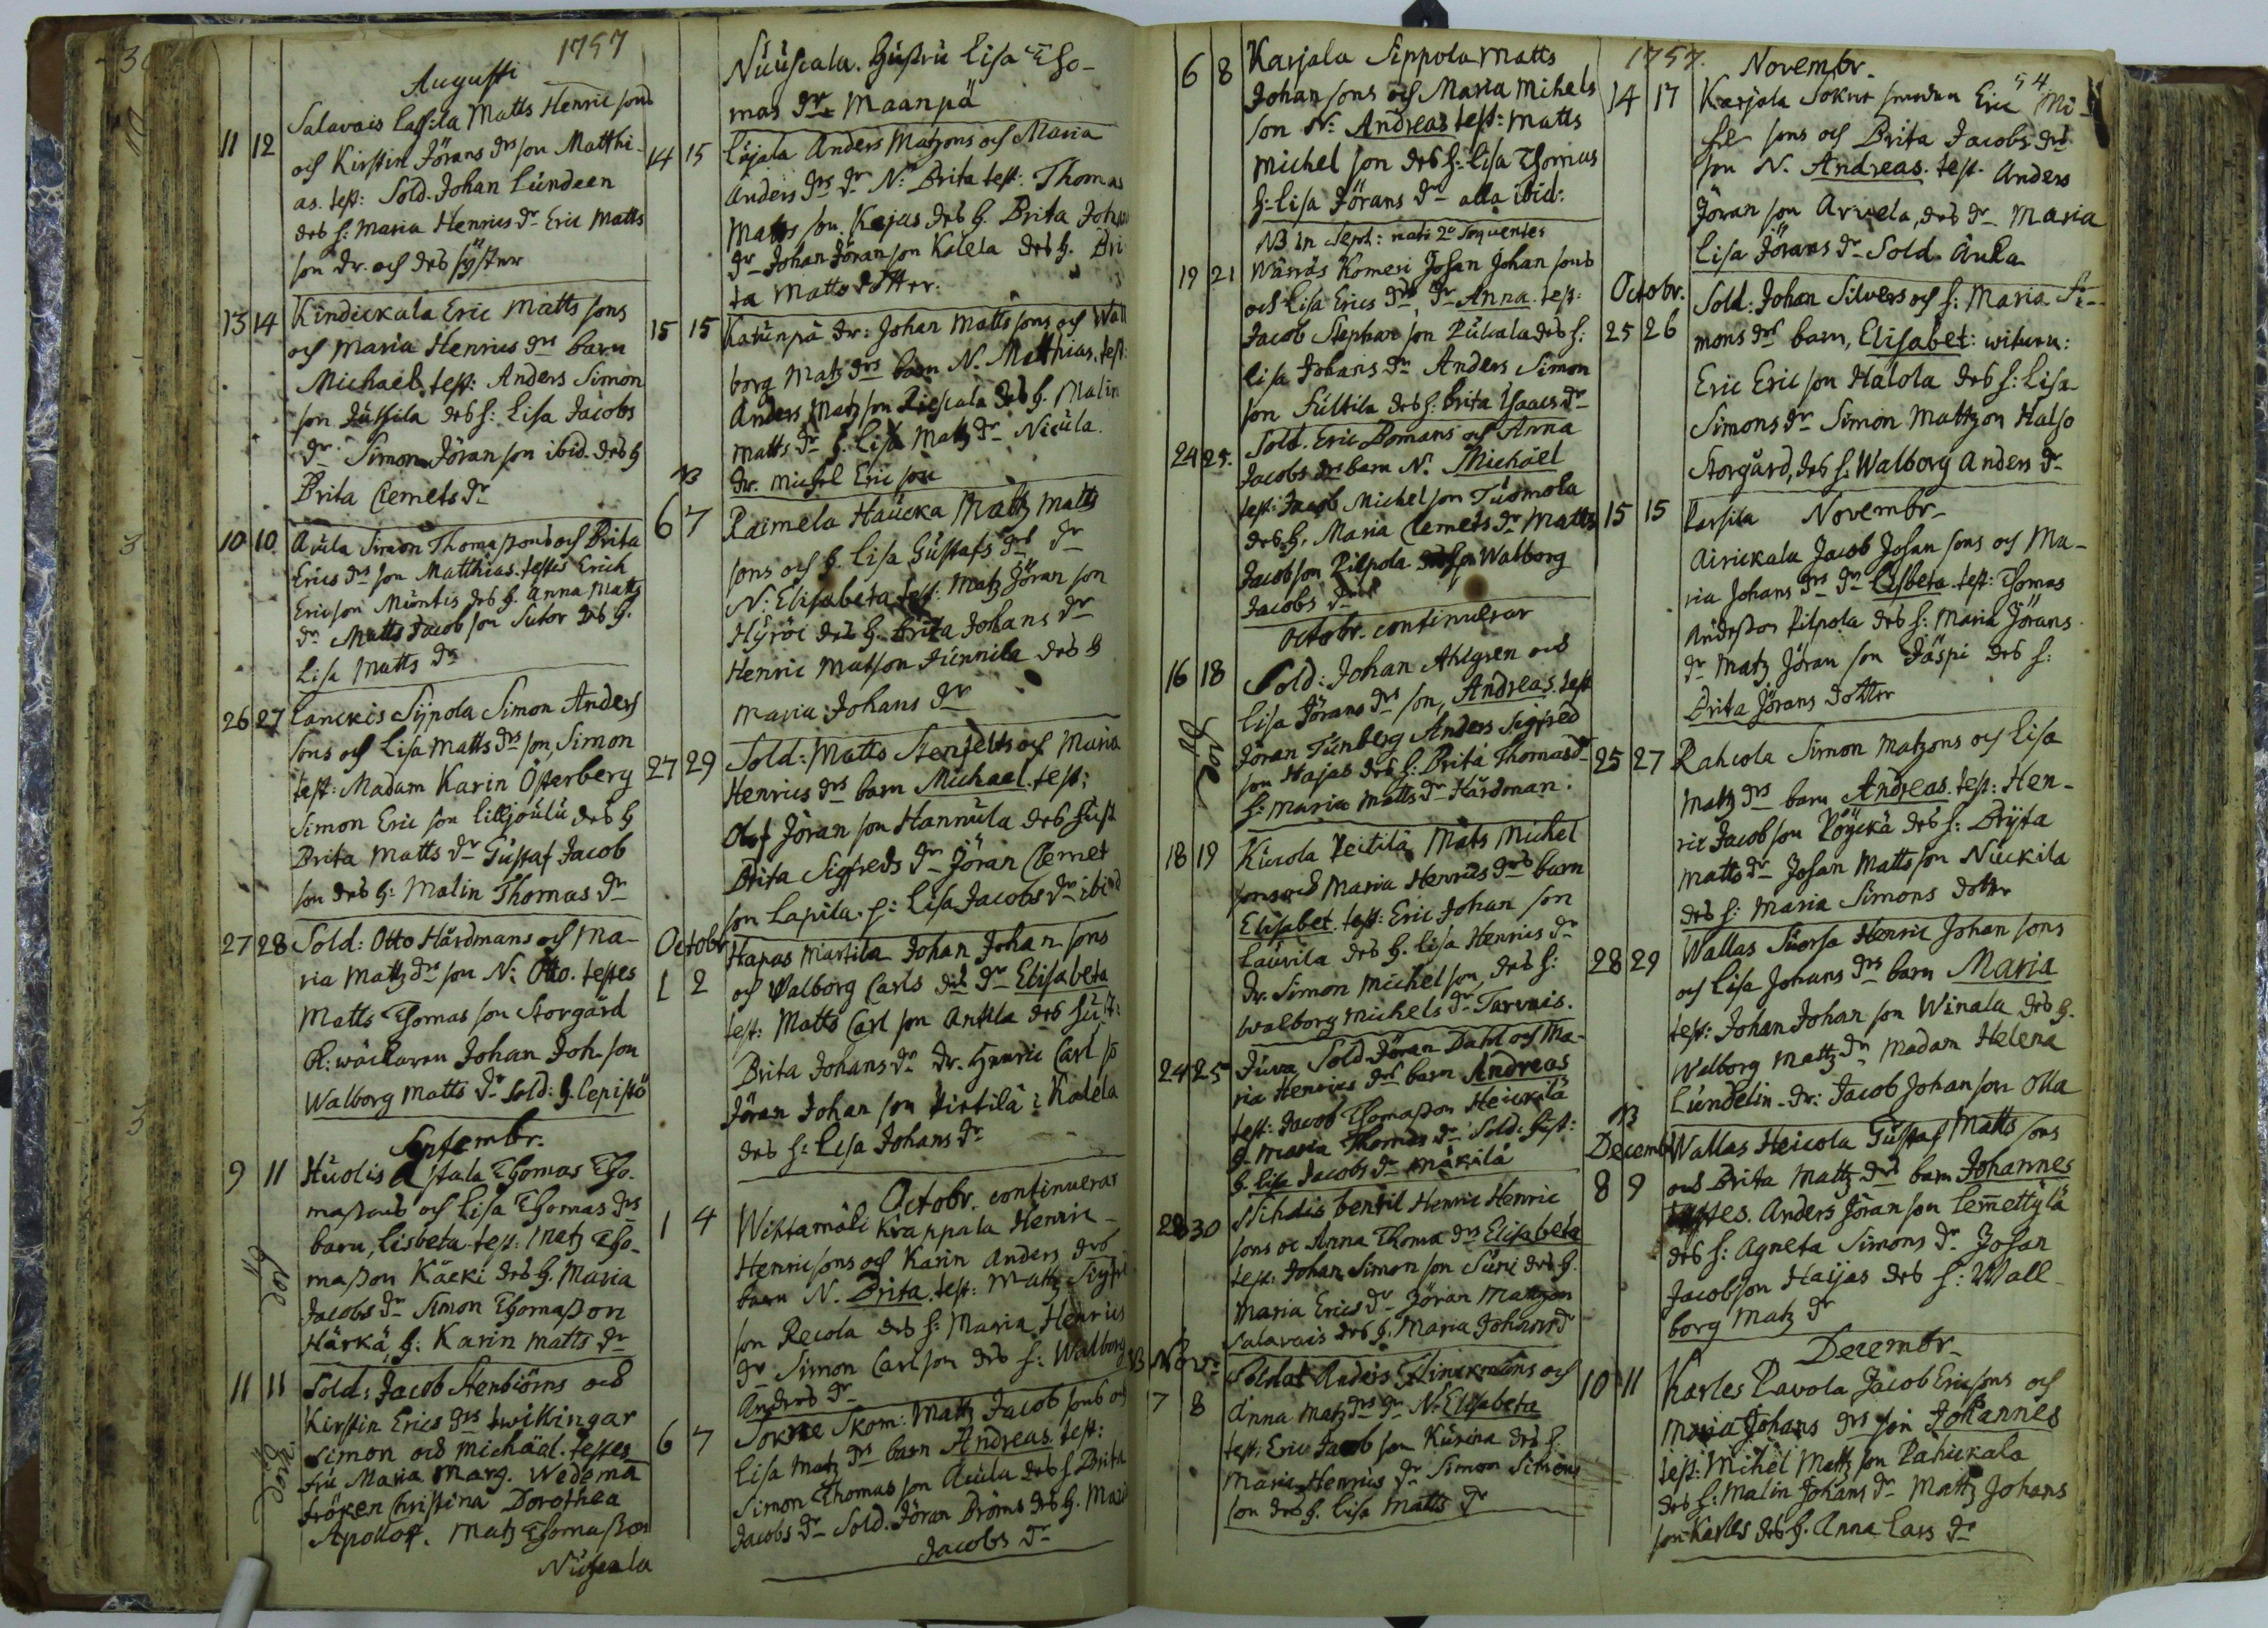 1757
Augusti
11 12 Salavais Lassila Matts Henric sons
och Kirstin Jörans drs son Matthi-
as. test: Sold. Johan Lundeen
des h: Maria Henrics dr Eric Matts
son dr. och des syster
13 14 Kindickala Eric Matts sons
och Maria Henrics drs barn
Michael test: Anders Simon
son Jussila des h: Lisa Jacobs
dr Simon Jöran son ibid. des h
Brita Clemets dr
10 10 Aŭla Simon Thomassons och Brita
Erics drs son Matthias. testes Erich
Ericson Mŭntis des h. Anna Matts
dr Matts Jacob son Sutor des h.
Lisa Matts dr
26 27 Lanckis Sippola Simon Anders
sons och Lisa Matts drs son, Simon
test: Madam Karin Österberg
Simon Eric son Lilljoŭlŭ des h
Brita Matts dr Gŭstaf Jacob
son des h: Malin Thomas dr
27 28 Sold: Otto Hårdmans och Ma-
ria Mattz drs son N: Otto. testes
Matts Thomas son Storgård
Kl: wäckaren Johan Joh. son
Walborg Matts dr Sold: h. Lepistö
Septembr.
9 11 Hŭolis Astala Thomas Tho-
massons och Lisa Thomas drs
barn, Lisbeta test: Matz Tho-
masson Käcki des h. Maria
Jacobs dr Simon Thomasson
Härkä, h: Karin Matts dr
11 11 Sold: Jacob Stenbiörns och
Kirstin Erics drs twillingar
Simon och Michäel. testes
frŭ Maria Marg. Wedema
fröken Christina Dorothea
Apolloff. Matz Thomasson
Nŭscala
Nŭŭscala. Hŭstrŭ Lisa Tho-
mas dr Maanpä
14 15 Löjala Anders Matzons och Maria
Anders drs dr N: Brita test: Thomas
Matts son. Kajas des h. Brita Johans
dr Johan Jöran son Kalela des h. Bri-
ta Matts dotter.
15 15 Katŭnpä dr: Johan Matts sons och Wal
borg Matz drs barn N. Matthias. test:
Anders Matz son Riescala des h. Malin
Matts dr h. Lisa Matz dr Nicŭla.
NB dr. Michel Eric son
6 7 Raimela Haŭcka Matz Matts
sons och h. Lisa Gŭstafs drs dr
N: Elisabeta test: Matz Jöran son
Hyröi des h. Brita Johans dr
Henric Matson Jŭnnila des h
Maria Johans dr
27 29 Sold: Matts Stenfelts och Maria
Henrics drs barn Michael. test:
Olof Jöran son Hannŭla des hŭst
Brita Sigfreds dr Jöran Clemet
son Lapila. h: Lisa Jacobs dr ibid
Octobr
1 2 Hapas Martila Johan Johan sons
och Walborg Carls drs dr Elisabeta
test: Matts Carl son Antila des hŭst:
Brita Johans dr dr. Henric Carl so
Jöran Johan son Pietilä i Kaléla
des h: Lisa Johans dr
Octobr. continuerar
1 4 Wihtamäki Krappala Henric
Henricsons och Karin Anders drs
barn N. Brita. test: Mattz Sigfri
son Recola des h: Maria Henrics
dr Simon Carlson des h: Walborg
Anders dr
6 7 Sokne Skom: Mattz Jacob sons och
Lisa Matz drs barn Andreas. test:
Simon Thomas son Aŭla des h Brita
Jacobs dr Sold. Jöran Dröms des h. Mari
Jacobs dr
6 8 Karjala Seppola Matts
Johan sons och Maria Mihels
son N: Andreas test: Matts
Michel son des h: Lisa Thomas
h: Lisa Jörans dr alla ibid:
NB in Sept: nati 2o sequentes
19 21 Wäsräs Komesi Johan Johan sons
och Lisa Erics drs, dr Anna. test:
Jacob Stephan son Pŭkala des h:
Lisa Johans dr Anders Simon
son Sŭltila des h: Brita Isaacs dr
24 25. Sold. Eric Bomans och Anna
Jacobs drs barn N. Michäel
test: Jacob Michel son Tŭomola
des h. Maria Clemets dr Matts
Jacob son Pilpola Walborg
Jacobs dr
Octobr. continuerar
16 18 Sold: Johan Ahlgren och
Lisa Jörans drs son, Andreas. test
Jöran Tŭnberg Anders Sigfred
son Hajas des h: Brita Thomas dr
h: Maria Matts dr Hårdman.
18 19 Kicrola Peitilä Mats Michel
sons och Maria Henrics drs barn
Elisabet. test: Eric Johan son
Laŭrila des h. Lisa Henrics dr
dr. Simon Michel son, des h:
Walborg Michels dr Tarvais.
24 25 Jŭva Sold. Jöran Dahl och Ma-
ria Henrics drs barn Andreas
test: Jacob Thomasson Heickilä
h. Maria Thomas dr Sold: hŭst:
h. Lisa Jacobs dr Mäkilä
28 30 Nihdis bertil Henric Henric
sons oc Anna Thoma drs Elisabeta
test: Johan Simon son Sŭni des h.
Maria Erics dr Jöran Mattzon
Salavais des h. Maria Johans dr
NB Nov:
7 8 Soldat Anders Flinckmans och
Anna Matz drs dr N. Elisabeta
test: Eric Jacob son Kŭrina des h.
Maria Henrics dr Simon Simons
son des h. Lisa Matts dr
1757. Novembr.
54
14 17 Karjala Sokne smeden Eric Mi-
hel sons och Brita Jacobs drs
son N. Andreas. test. Anders
Jöran son Arvela, des dr Maria
Lisa Jörans dr Sold. Ånka
Octobr.
25 26 Sold: Johan Silvers och h: Maria Si-
mons drs barn, Elisabet: witnen:
Eric Eric son Halola des h: Lisa
Simons dr Simon Mattzon Halso
Storgård, des h: Walborg Anders dr
Novembr.
15 15 Karsila
Airickala Jacob Johan sons och Ma-
ria Johans drs dr Lisbeta. test: Thomas
Andersson Pilpola des h: Maria Jörans
dr Matz Jöran son Jäspi des h:
Brita Jörans dotter
25 27 Rahcola Simon Matzons och Lisa
Matz drs barn Andreas. test: Hen-
ric Jacob son Pöyckä des h: Brijta
Matts dr Johan Matts son Nŭckila
des h: Maria Simons dotter
28 29 Wallas Sŭorsa Henric Johan sons
och Lisa Johans drs barn Maria
test: Johan Johan son Winala des h.
Walborg Mattz dr, Madam Helena
Lŭndelin. dr: Jacob Johan son Olla
NB
Decembr
8 9 Wallas Heicola Gŭstaf Matts sons
och Brita Mattz drs barn Johannes
testes. Anders Jöran son Lemettylä
des h: Agneta Simons dr Johan
Jacobson Haijas des h: Wall-
borg Matz dr
Decembr.
10 11 Karles Pavola Jacob Ericsons och
Maria Johans drs son Johannes
test: Mihel Mattz son Pahickala
des h: Malin Johans dr Mattz Johans
son Karles des h. Anna Lars dr